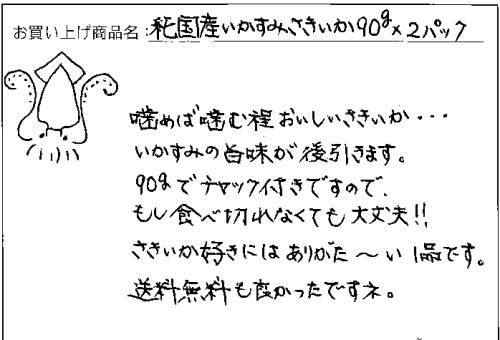 お買い上げ商品名:純国産いかすみさきいか90g×2パック
噛めば噛む程おいしいさきいか・・・
いかすみの旨味が後引きます。
90gでチャック付きですので、
もし食べ切れなくても大丈夫!!
さきいか好きにはありがた〜い1品です。
送料無料も良かったですネ。